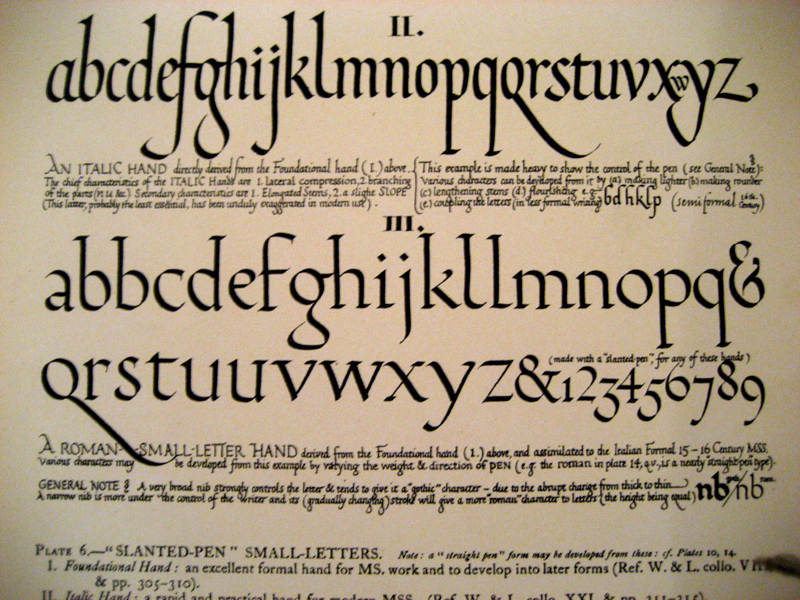 II.
abcdefghijklmnopqrstuvxwyz
AN ITALIC HAND directly derived from the Foundational hand (I.) above.
The chief characteristics of the ITALIC Hands are 1. lateral compression, 2. branching
of the parts (n. u &c.) Secondary characteristics are 1. Elongated Stems, 2. a slight SLOPE
(This latter, probably the least essential, has been unduly exaggerated in modern use).
This example is made heavy to show the control of the pen (see General Note):
Various characters can be developed from it by (a) making lighter (b) making rounder
(c) lengthening stems (d) flourishing e.g.
(e) coupling the letters (in less formal writing) bdhklp (semi formal 16th Century)
III.
abbcdefghijkllmnopq&
qrstuuvwxyz&123456789
(made with a "slanted pen", for any of these hands)
A ROMAN SMALL-LETTER HAND derived from the Foundational hand (I.) above, and assimilated to the Italian Formal 15–16 Century MSS.
Various characters may be developed from this example by varying the weight & direction of PEN (e.g. the roman in plate 14, q.v., is a nearly straight pen type).
GENERAL NOTE § A very broad nib strongly controls the letter & tends to give it a "gothic" character – due to the abrupt change from thick to thin
A narrow nib is more under the control of the writer and its (gradually changing) stroke will give a more "roman" character to letters (the height being equal) nb goth/nb rom.
PLATE 6.—"SLANTED-PEN" SMALL-LETTERS. Note: a "straight pen" form may be developed from these: cf. Plates 10, 14.
I. Foundational Hand: an excellent formal hand for MS. work and to develop into later forms (Ref. W. & L. collo.
& pp. 305–310).
II. Italic Hand: a rapid and practical hand for modern MSS. (Ref. W. & L. collo. XXI. & pp. 311–315).